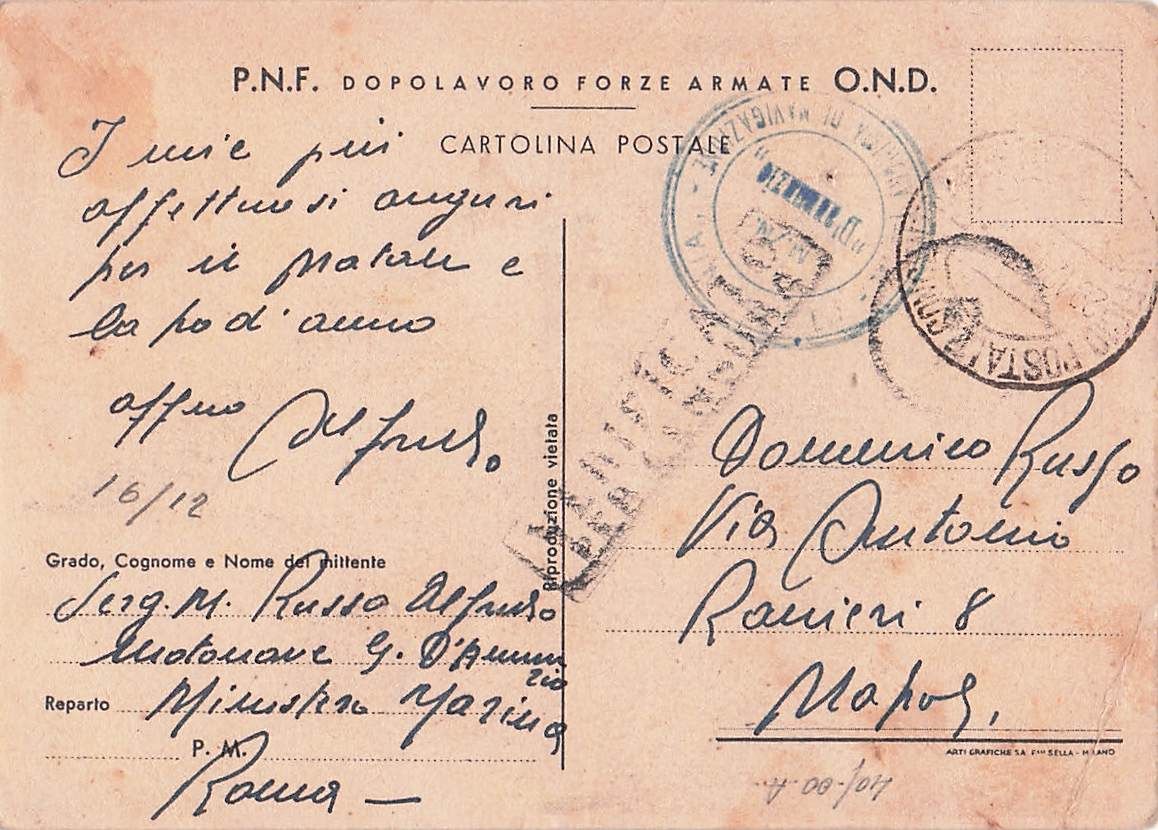 P.N.F. DOPOLAVORO FORZE ARMATE O.N.D.
CARTOLINA POSTALE
I miei più
affettuosi auguri
per il Natale e
capo d'anno
affmo Alfredo
16/12
Grado, Cognome e Nome del mittente
Serg. M. Russo Alfredo
Motonave G. D'Annun
zio
Reparto Ministero Marina
P. M.
Roma
Riproduzione vietata
DI NAVIGAZIONE
VERIFICATO
PER CENSURA
POSTA
Domenico Russo
Via Antonio
Ranieri 8
Napoli
ARTI GRAFICHE SA Flli SELLA - MILANO